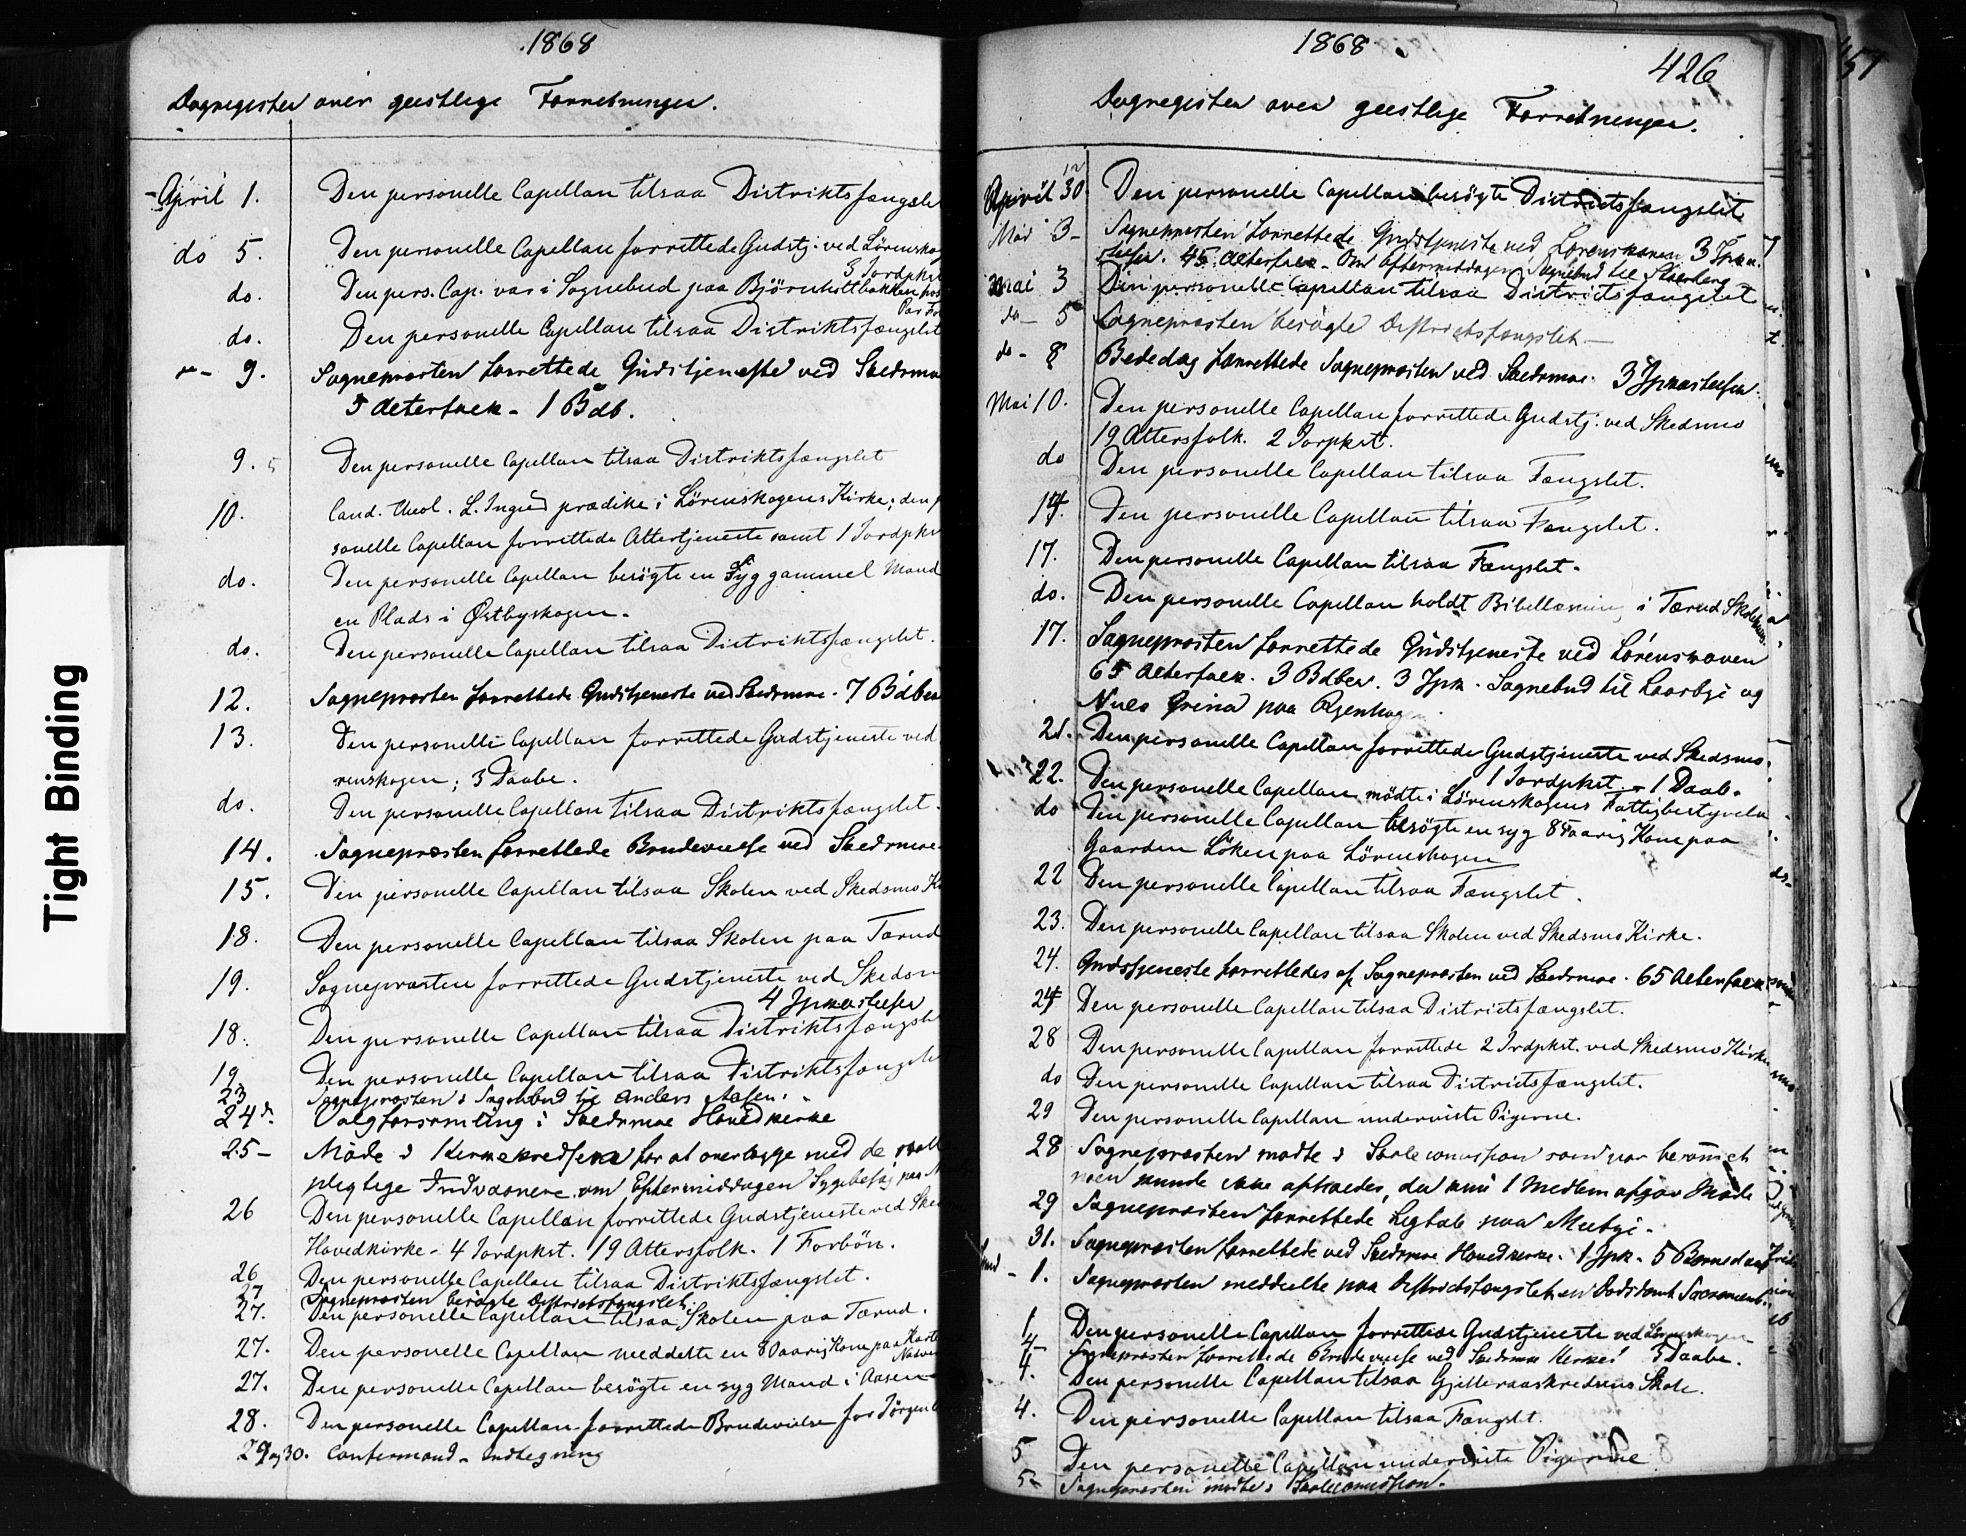 1868
Dagregister over geistlige Forretninger.
April 1. Den personelle Capellan tilsaa Distriktsfængslet
do 5. Den personelle Capellan forrettede Gudstj. ved Lørenskog
3 Jordpkst
do. Den pers. Cap. var i Sognebud paa Björnholtbakken
do. Den personelle Capellan tilsaa Distriktsfængslet
9. Sognepræsten forrettede Gudstjeneste ved Skedsmo
5 Alterfolk - 1 Bdb.
9. Den personelle Capellan tilsaa Distriktsfængslet
10. Cand. theol. L. prædike i Lørenskogens Kirke; den p
sonelle Capellan forrettede Altertjeneste samt 1 Jordpks
do. Den personelle Capellan besögte en Syg gammel Mand
en Plads i Østbyskogen.
do. Den personelle Capellan tilsaa Distriktsfængslet.
12. Sognepræsten forrettede Gudstjeneste ved Skedsmo. 7 Bdber
13. Den personelle Capellan forrettede Gudstjeneste ved
renskogen; 3 Daabe.
do. Den personelle Capellan tilsaa Distriktsfængslet.
14. Sognepræsten forrettede Brudevielse ved Skedsmo.
15. Den personelle Capellan tilsaa Skolen ved Skedsmo K
18. Den personelle Capellan tilsaa Skolen paa Tærud
19. Sognepræsten forrettede Gudstjeneste ved Skedsm
4 Jpkastelser
18. Den personelle Capellan tilsaa Distriktsfængsle
19 Den personelle Capellan tilsaa Distriktsfængsle
23 Sognepræsten i Sognebud til Anders Aasen.
24 Valgforsamling i Skedsmo Hovedkirke
25- Møde i for at overlægge med de
pligtige Indvaanere, om Eftermiddagen Sygebesøg paa
26 Den personelle Capellan forrettede Gudstjeneste ved Sked
Hovedkirke - 4 Jordpkst. 19 Altersfolk. 1 Forbön.
26 Den personelle Capellan tilsaa Distriktsfængslet.
27 Sognepræsten besøgte Distriktsfængslet.
27. Den personelle Capellan tilsaa Skolen paa Tærud.
27. Den personelle Capellan meddelte en 80aarig Kone paa
27. Den personelle Capellan besögte en syg Mand i Aasen
28. Den personelle Capellan forrettede Brudevielse for Jørgen
29 og 30. Confirmand-Indtegning
1868
426
Dagregister over geistlige Forretninger.
April 30. Den personelle Capellan besögte Districtsfængslet
Mai 3- Sognepræsten forrettede Gudstjeneste ved Lørenskoven 3 Jpka
stelser. 45 Alterfolk - Om Eftermiddagen Sognebud til
Mai 3 Den personelle Capellan tilsaa Districtsfængslet
do - 5 Sognepræsten besøgte Distriktsfængslet -
do - 8 Bededag forrettede Sognepræsten ved Skedsmo. 3 Jpkastelser.
Mai 10. Den personelle Capellan forrettede Gudstj. ved Skedsmo
19 Altersfolk. 2 Jorpkst.
do Den personelle Capellan tilsaa Fængslet.
14. Den personelle Capellan tilsaa Fængslet.
17. Den personelle Capellan tilsaa Fængslet.
do. Den personelle Capellan holdt Bibellæsning i Tærud Skolehus
17. Sognepræsten forrettede Gudstjeneste ved Lørenskoven
65 Alterfolk. 3 Bdber. 3 Jpk. Sognebud til og
paa
21. Den personelle Capellan forrettede Gudstjeneste ved Skedsmo.
1 Jordpkst. - 1 Daab.
22. Den personelle Capellan mödte i Lørenskogens Fattigbestyrelse
do Den personelle Capellan besögte en syg 85aarig Kone paa
Gaarden Löken paa Lørenskogen
22 Den personelle Capellan tilsaa Fængslet.
23. Den personelle Capellan tilsaa Skolen ved Skedsmo Kirke.
24. Gudstjeneste forrettedes af Sognepræsten ved Skedsmo. 65 Alterfolk
24 Den personelle Capellan tilsaa Districtsfængslet.
28 Den personelle Capellan forrettede 2 Jrdpkst. ved Skedsmo Kirke
do Den personelle Capellan tilsaa Districtsfængslet.
29 Den personelle Capellan underviste Pigerne.
28 Sognepræsten mødte i Skolecommission som var berammet
men kunde ikke afholdes, da kun 1 Medlem afgav Møde
29 Sognepræsten forrettede Ligtale paa
31. Sognepræsten forrettede ved Skedsmo Hovedkirke. 1 Jpk. 5 Barnedaab
- 1. Sognepræsten meddelte paa Distriktsfængslet en Dødsdømt Sacrament.
1 Den personelle Capellan forrettede Gudstjeneste ved Lørenskogen
4- Sognepræsten forrettede Brudevielse ved Skedsmo Kirke. 5 Daabe.
4. Den personelle Capellan tilsaa Gjelleraaskredsens Skole.
4. Den personelle Capellan tilsaa Fængslet.
5 Den personelle Capellan underviste Pigerne
5- Sognepræsten mødte i Skolecommission.
457
Tight Binding